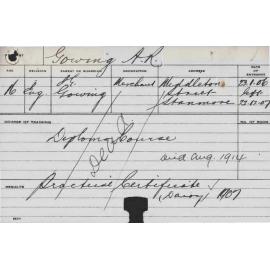 Gowing A.R.
AGE RELIGION PARENT OR GUARDIAN OCCUPATION ADDRESS DATE OF ENTRANCE
16 Eng Gowing Merchant Middleton Street Stanmore 23.1.06
left 23.12.07
COURSE OF TRAINING
Diploma Course
died Aug. 1914
RESULTS Practical Certificate
(Dairy) 1907